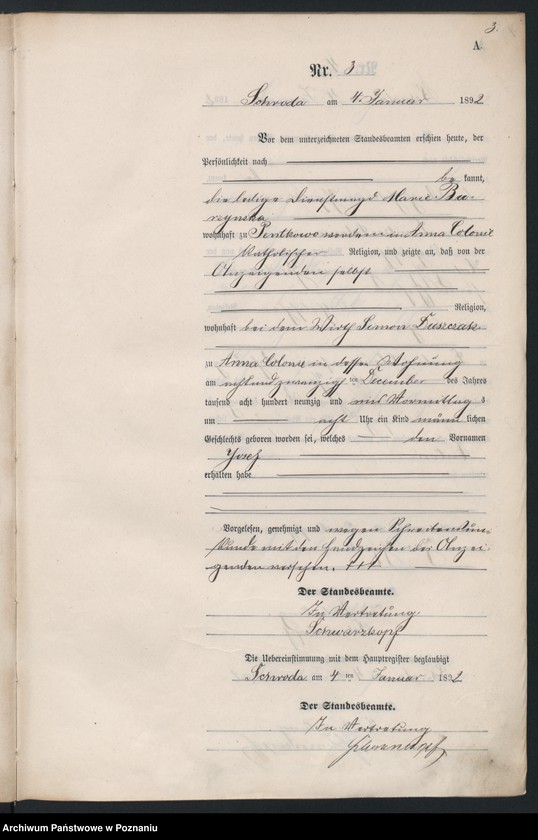 3.
A
Nr. 3
Schroda am 4. Januar 1892
Vor dem unterzeichneten Standesbeamten erschien heute, der
Persönlichkeit nach
be kannt,
die ledige Dienstmagd Marie Bu-
rzynska
wohnhaft zu Pentkowo in Anna Colonie
katholischer Religion, und zeigte an, daß von der
Anzeigenden selbst
Religion,
wohnhaft bei dem Wirth Simon
zu Anna Colonie in dessen Wohnung
am achtundzwanzigsten December des Jahres
tausend acht hundert neunzig und eins Vormittag s
um acht Uhr ein Kind männ lichen
Geschlechts geboren worden sei, welches den Vornamen
Josef
erhalten habe
Vorgelesen, genehmigt und wegen Schreibensun-
kunde mit den Handzeichen der Anzei-
genden versehen. +++
Der Standesbeamte.
In Vertretung
Schwarzkopf
Die Uebereinstimmung mit dem Hauptregister beglaubigt
Schroda am 4 ten Januar 1892
Der Standesbeamte.
In Vertretung
Schwarzkopf
Archiwum Państwowe w Poznaniu